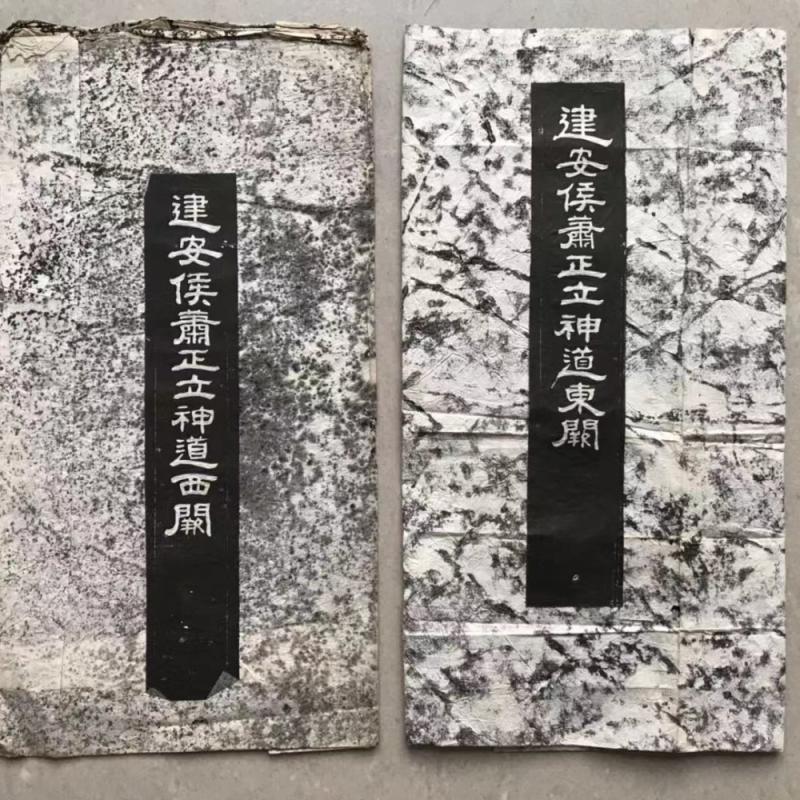 建安侯蕭正立神道西闕
建安侯蕭正立神道東闕